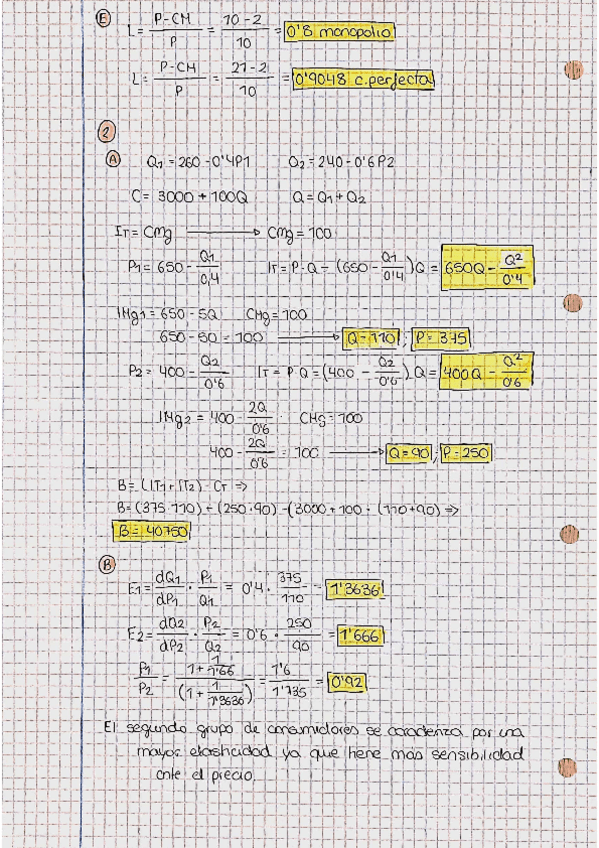 E L = P-CM / P = 10-2 / 10 = 0'8 monopolio
L = P-CM / P = 21-2 / 10 = 0'9048 c.perfecta
2
A Q1 = 260 - 0'4P1 Q2 = 240 - 0'6P2
C = 3000 + 100Q Q = Q1 + Q2
IT = CMg → CMg = 100
P1 = 650 - Q1/0,4 IT = P·Q = (650 - Q1/0'4)Q = 650Q - Q²/0'4
IMg1 = 650 - 5Q CMg = 100
650 - 5Q = 100 → Q = 110 ; P = 375
P2 = 400 - Q2/0'6 IT = P·Q = (400 - Q2/0'6)Q = 400Q - Q²/0'6
IMg2 = 400 - 2Q/0'6 CMg = 100
400 - 2Q/0'6 = 100 → Q = 90 ; P = 250
B = (IT1 + IT2) - CT ⇒
B = (375·110) + (250·90) - (3000 + 100·(110+90) ⇒
B = 40750
B
E1 = dQ1/dP1 · P1/Q1 = 0'4 · 375/110 = 1'3636
E2 = dQ2/dP2 · P2/Q2 = 0'6 · 250/90 = 1'666
P1/P2 = 1 + 1/1'66 / (1 + 1/1'3636) = 1'6/1'735 = 0'92
El segundo grupo de consumidores se caracteriza por una
mayor elasticidad ya que tiene mas sensibilidad
ante el precio.